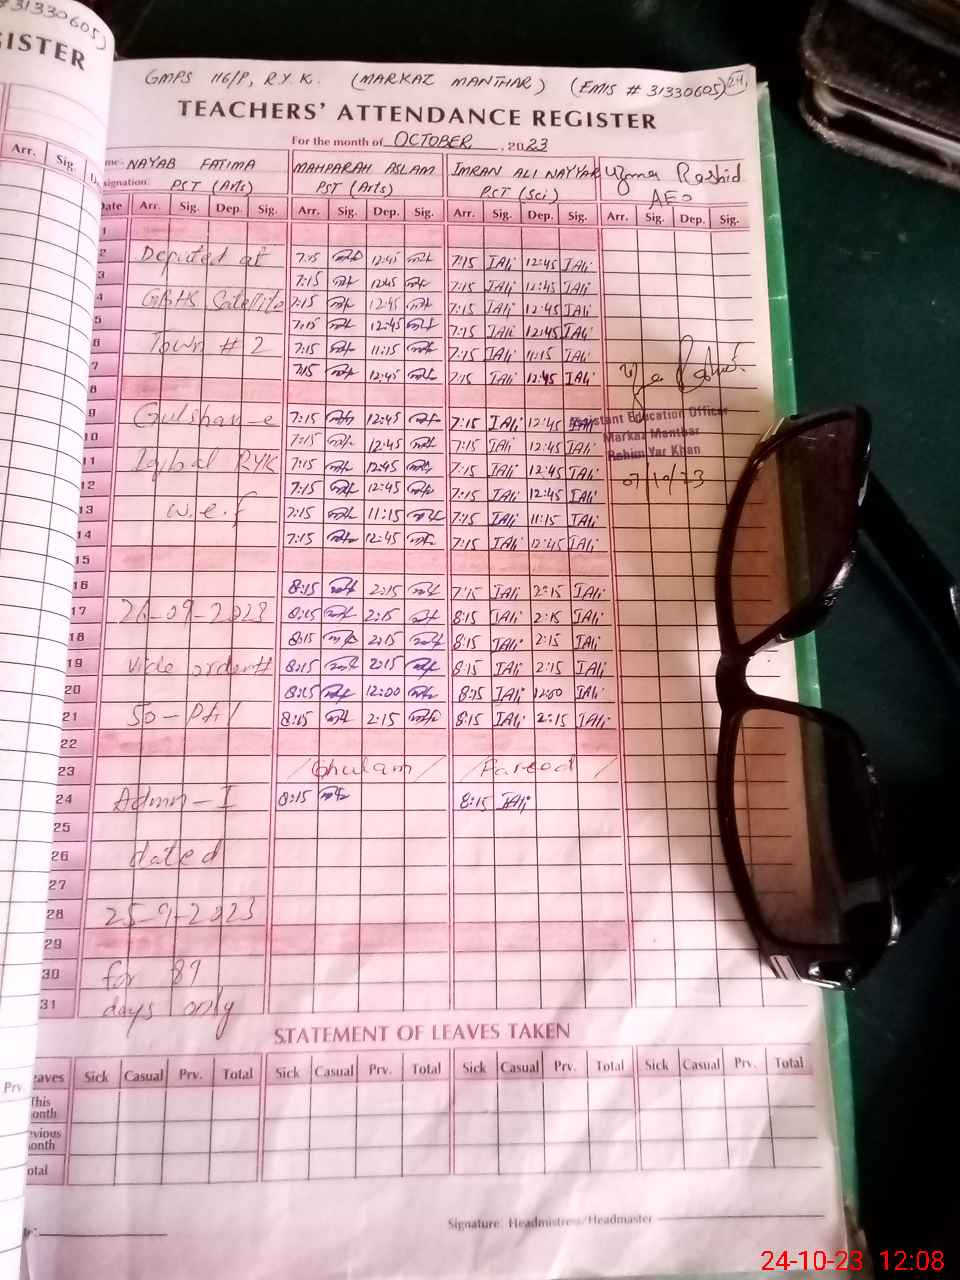 # 31330605)
ISTER
Arr. Sig.
GMPS 116/P, R.Y.K. (MARKAZ MANTHAR) (EMIS # 31330605)
TEACHERS' ATTENDANCE REGISTER
For the month of OCTOBER, 2023
me: NAYAB FATIMA MAHPARAH ASLAM IMRAN ALI NAYYAR Uzma Rashid
signation: PST (Arts) PST (Arts) PST (Sci) AEO
Date Arr. Sig. Dep. Sig. Arr. Sig. Dep. Sig. Arr. Sig. Dep. Sig. Arr. Sig. Dep. Sig.
1
2 Deputed at 7:15 12:45 7:15 IAli 12:45 IAli
3 7:15 12:45 7:15 IAli 12:45 IAli
4 GGHS Satellite 7:15 12:45 7:15 IAli 12:45 IAli
5 7:15 12:45 7:15 IAli 12:45 IAli
6 Town # 2 7:15 11:15 7:15 IAli 11:15 IAli
7 7:15 12:45 7:15 IAli 12:45 IAli
8
9 Gulshan-e 7:15 12:45 7:15 IAli 12:45 IAli
Assistant Education Officer
10 7:15 12:45 7:15 IAli 12:45 IAli
Markaz Manthar
11 Iqbal RYK 7:15 12:45 7:15 IAli 12:45 IAli
Rahim Yar Khan
12 7:15 12:45 7:15 IAli 12:45 IAli
13 w.e.f 7:15 11:15 7:15 IAli 11:15 IAli
14 7:15 12:45 7:15 IAli 12:45 IAli
15
16 8:15 2:15 7:15 IAli 2:15 IAli
17 26-09-2023 8:15 2:15 8:15 IAli 2:15 IAli
18 8:15 2:15 8:15 IAli 2:15 IAli
19 vide order# 8:15 2:15 8:15 IAli 2:15 IAli
20 8:15 12:00 8:15 IAli 12:00 IAli
21 8:15 2:15 8:15 IAli 2:15 IAli
22
23 / Ghulam / / Fareed /
24 Admn-I 8:15 8:15 IAli
25
26 dated
27
28 25-9-2023
29
30 for 89
31 days only
STATEMENT OF LEAVES TAKEN
eaves Sick Casual Prv. Total Sick Casual Prv. Total Sick Casual Prv. Total Sick Casual Prv. Total
Prv.
This
onth
evious
onth
otal
Signature: Headmistress/Headmaster
24-10-23 12:08